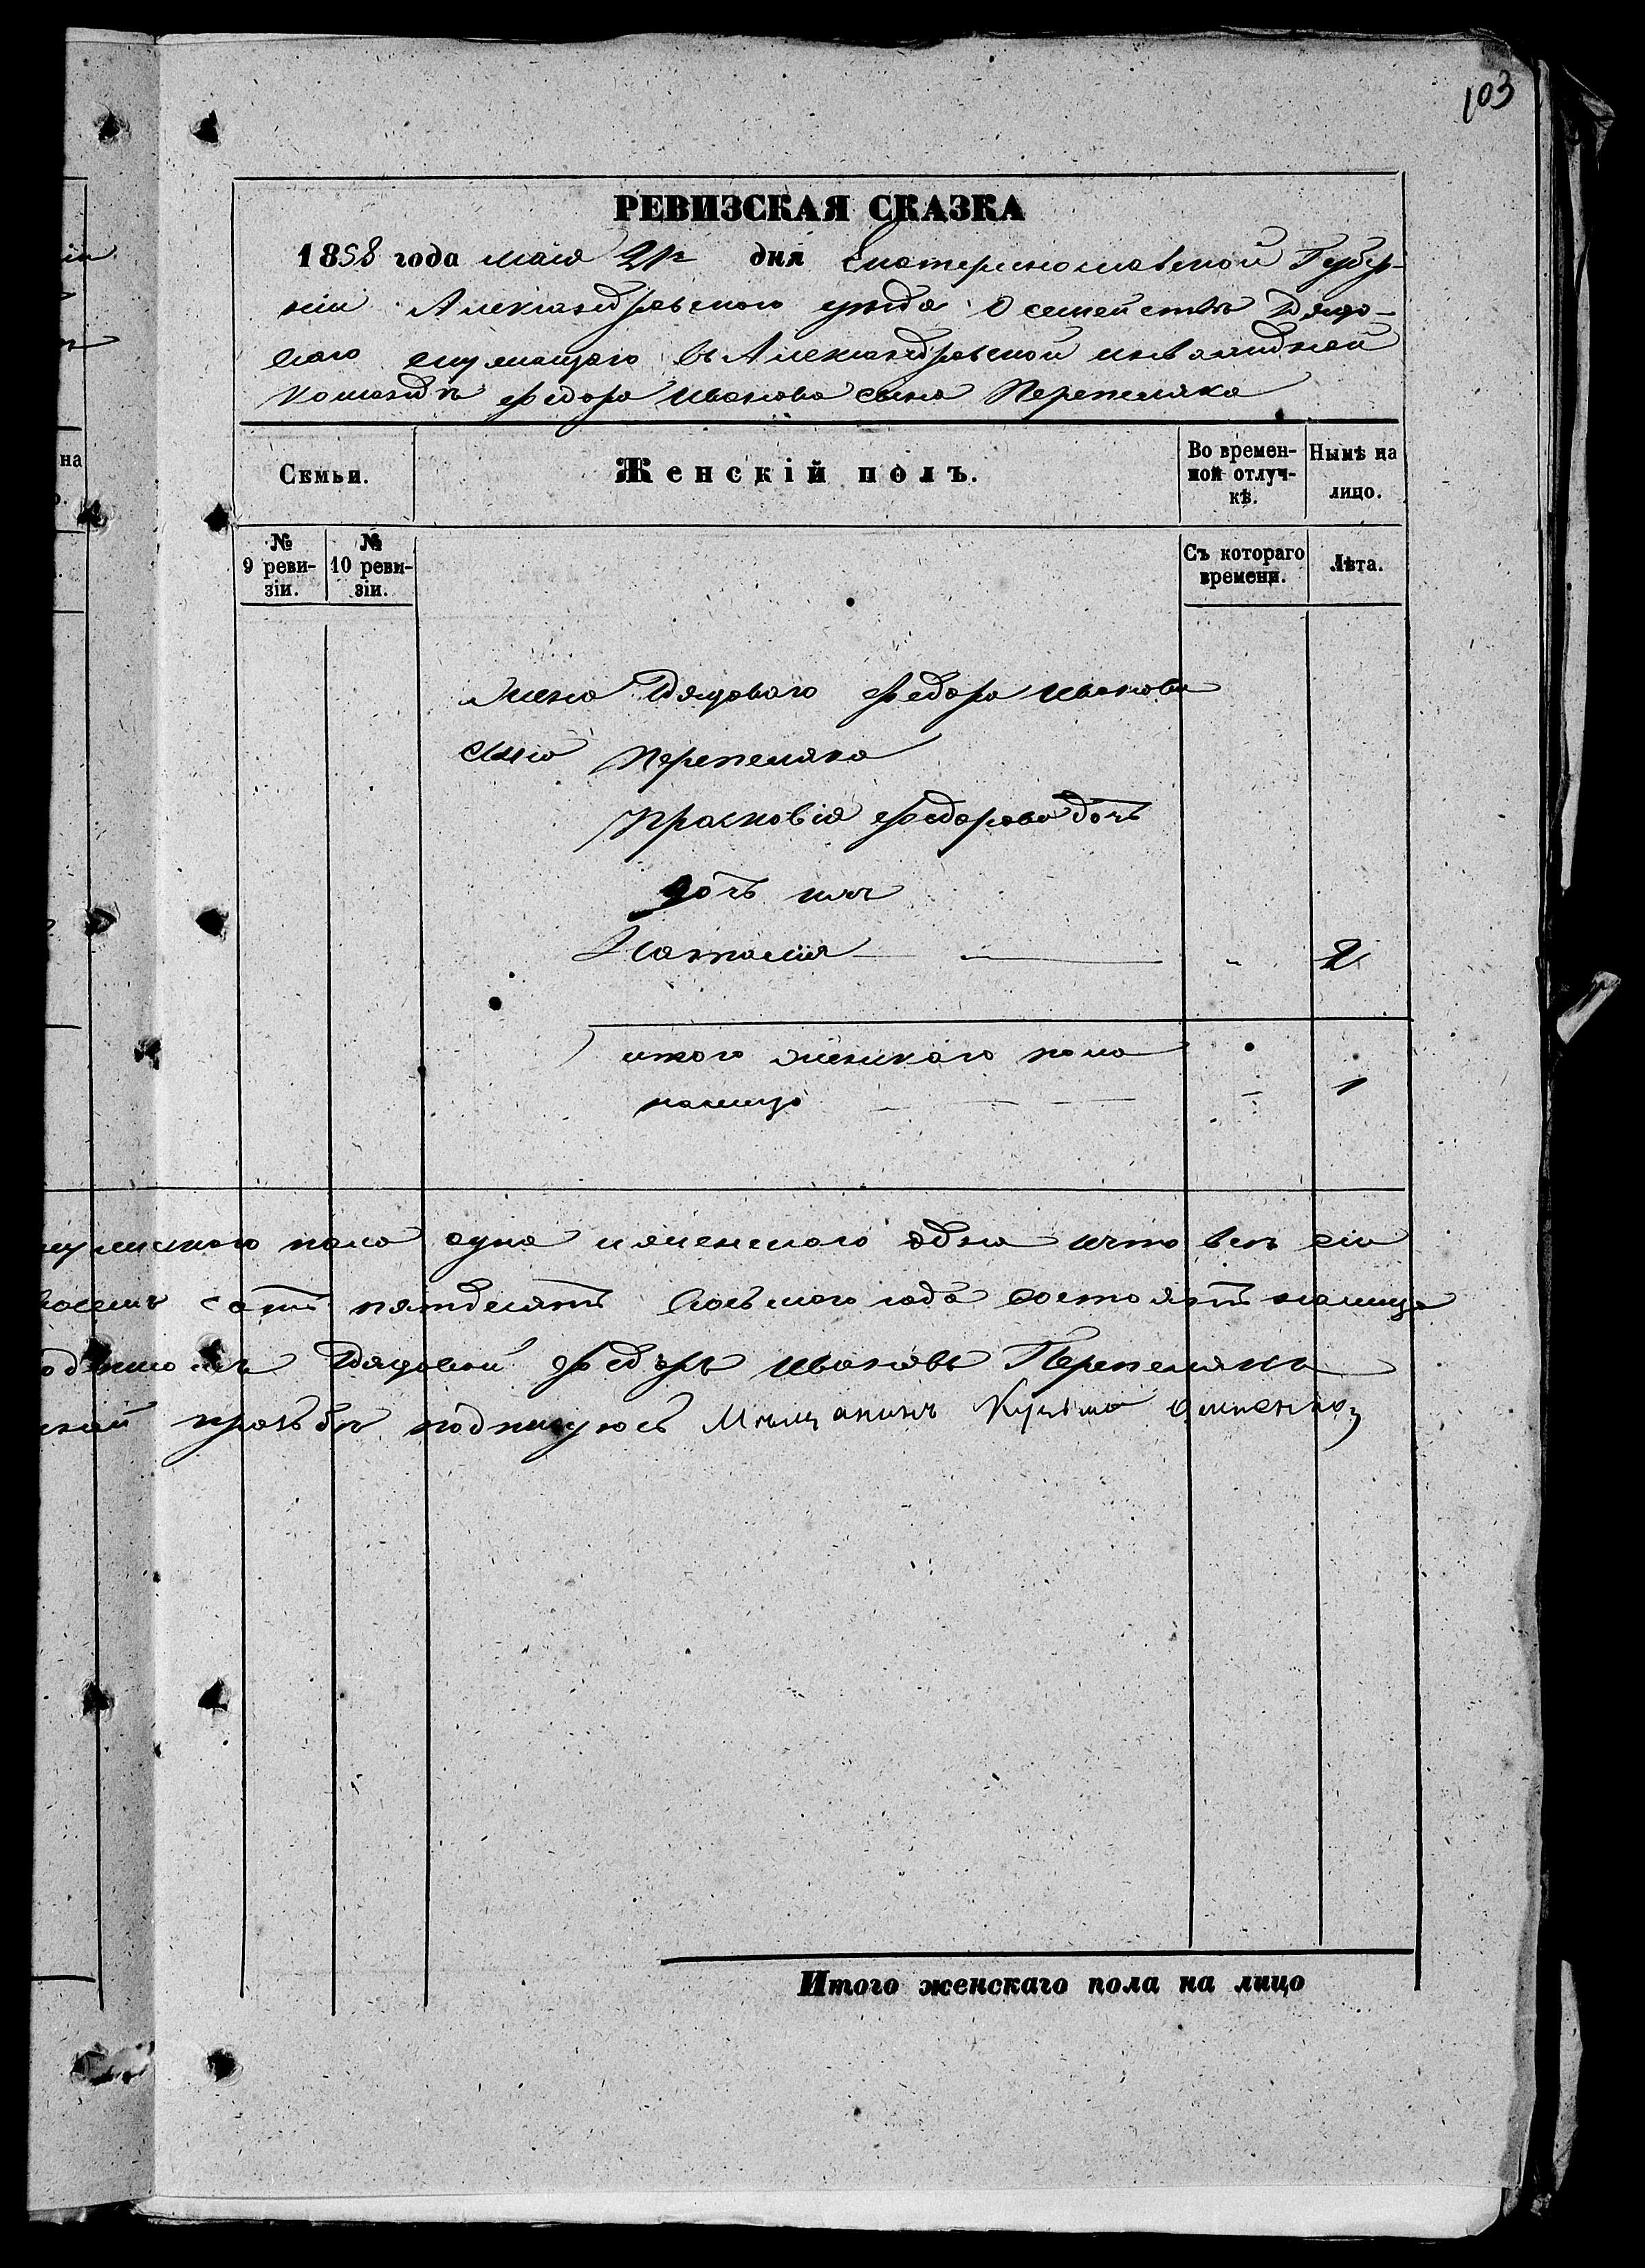 103
РЕВИЗСКАЯ СКАЗКА
1858 года мая 21го дня Екатеринославской Губер-
ніи Александровского уезда О семействе Рядо-
ваго служащаго въ Александровской инвалидной
командѣ Федора Иванова сына Перепеляка
на
Семьи.
Женскій полъ.
Во времен-
ной отлуч-
кѣ.
Нынѣ на
лицо.
№
9 реви-
зіи.
№
10 реви-
зіи.
Съ котораго
времени.
Лѣта.
Жена Рядоваго Федора Иванова
сына Перепеляка
Прасковія Федорова дочь
дочь ихъ
Наталія 2
итого женскаго пола
налицо 1
пола одна и женскаго одна и что все сіи
сотъ пятдесятъ восьмого года состоятъ налицо
Рядовой Федоръ Ивановъ Перепелякъ
прозьбе подпишуюсь Мещанинъ Кузьма
Итого женскаго пола на лицо